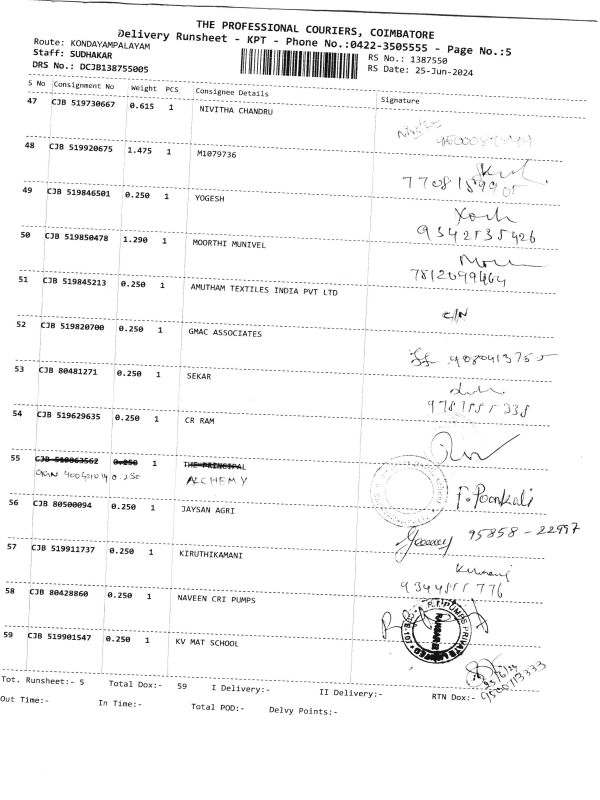 THE PROFESSIONAL COURIERS, COIMBATORE
Delivery Runsheet - KPT - Phone No.:0422-3505555 - Page No.:5
Route: KONDAYAMPALAYAM
Staff: SUDHAKAR
DRS No.: DCJB138755005
RS No.: 1387550
RS Date: 25-Jun-2024
S No Consignment No Weight PCS Consignee Details Signature
47 CJB 519730667 0.615 1 NIVITHA CHANDRU
48 CJB 519920675 1.475 1 M1079736
49 CJB 519846501 0.250 1 YOGESH
9342535426
50 CJB 519850478 1.290 1 MOORTHI MUNIVEL
7812099464
51 CJB 519845213 0.250 1 AMUTHAM TEXTILES INDIA PVT LTD
C/N
52 CJB 519820700 0.250 1 GMAC ASSOCIATES
9080913755
53 CJB 80481271 0.250 1 SEKAR
54 CJB 519629635 0.250 1 CR RAM
55 CJB 519863562 0.250 1 THE PRINCIPAL
0.250 ALCHEMY
P. Poonkali
56 CJB 80500094 0.250 1 JAYSAN AGRI
95858-22997
57 CJB 519911737 0.250 1 KIRUTHIKAMANI
58 CJB 80428860 0.250 1 NAVEEN CRI PUMPS
59 CJB 519901547 0.250 1 KV MAT SCHOOL
Tot. Runsheet:- 5 Total Dox:- 59 I Delivery:- II Delivery:- RTN Dox:-
Out Time:- In Time:- Total POD:- Delvy Points:-